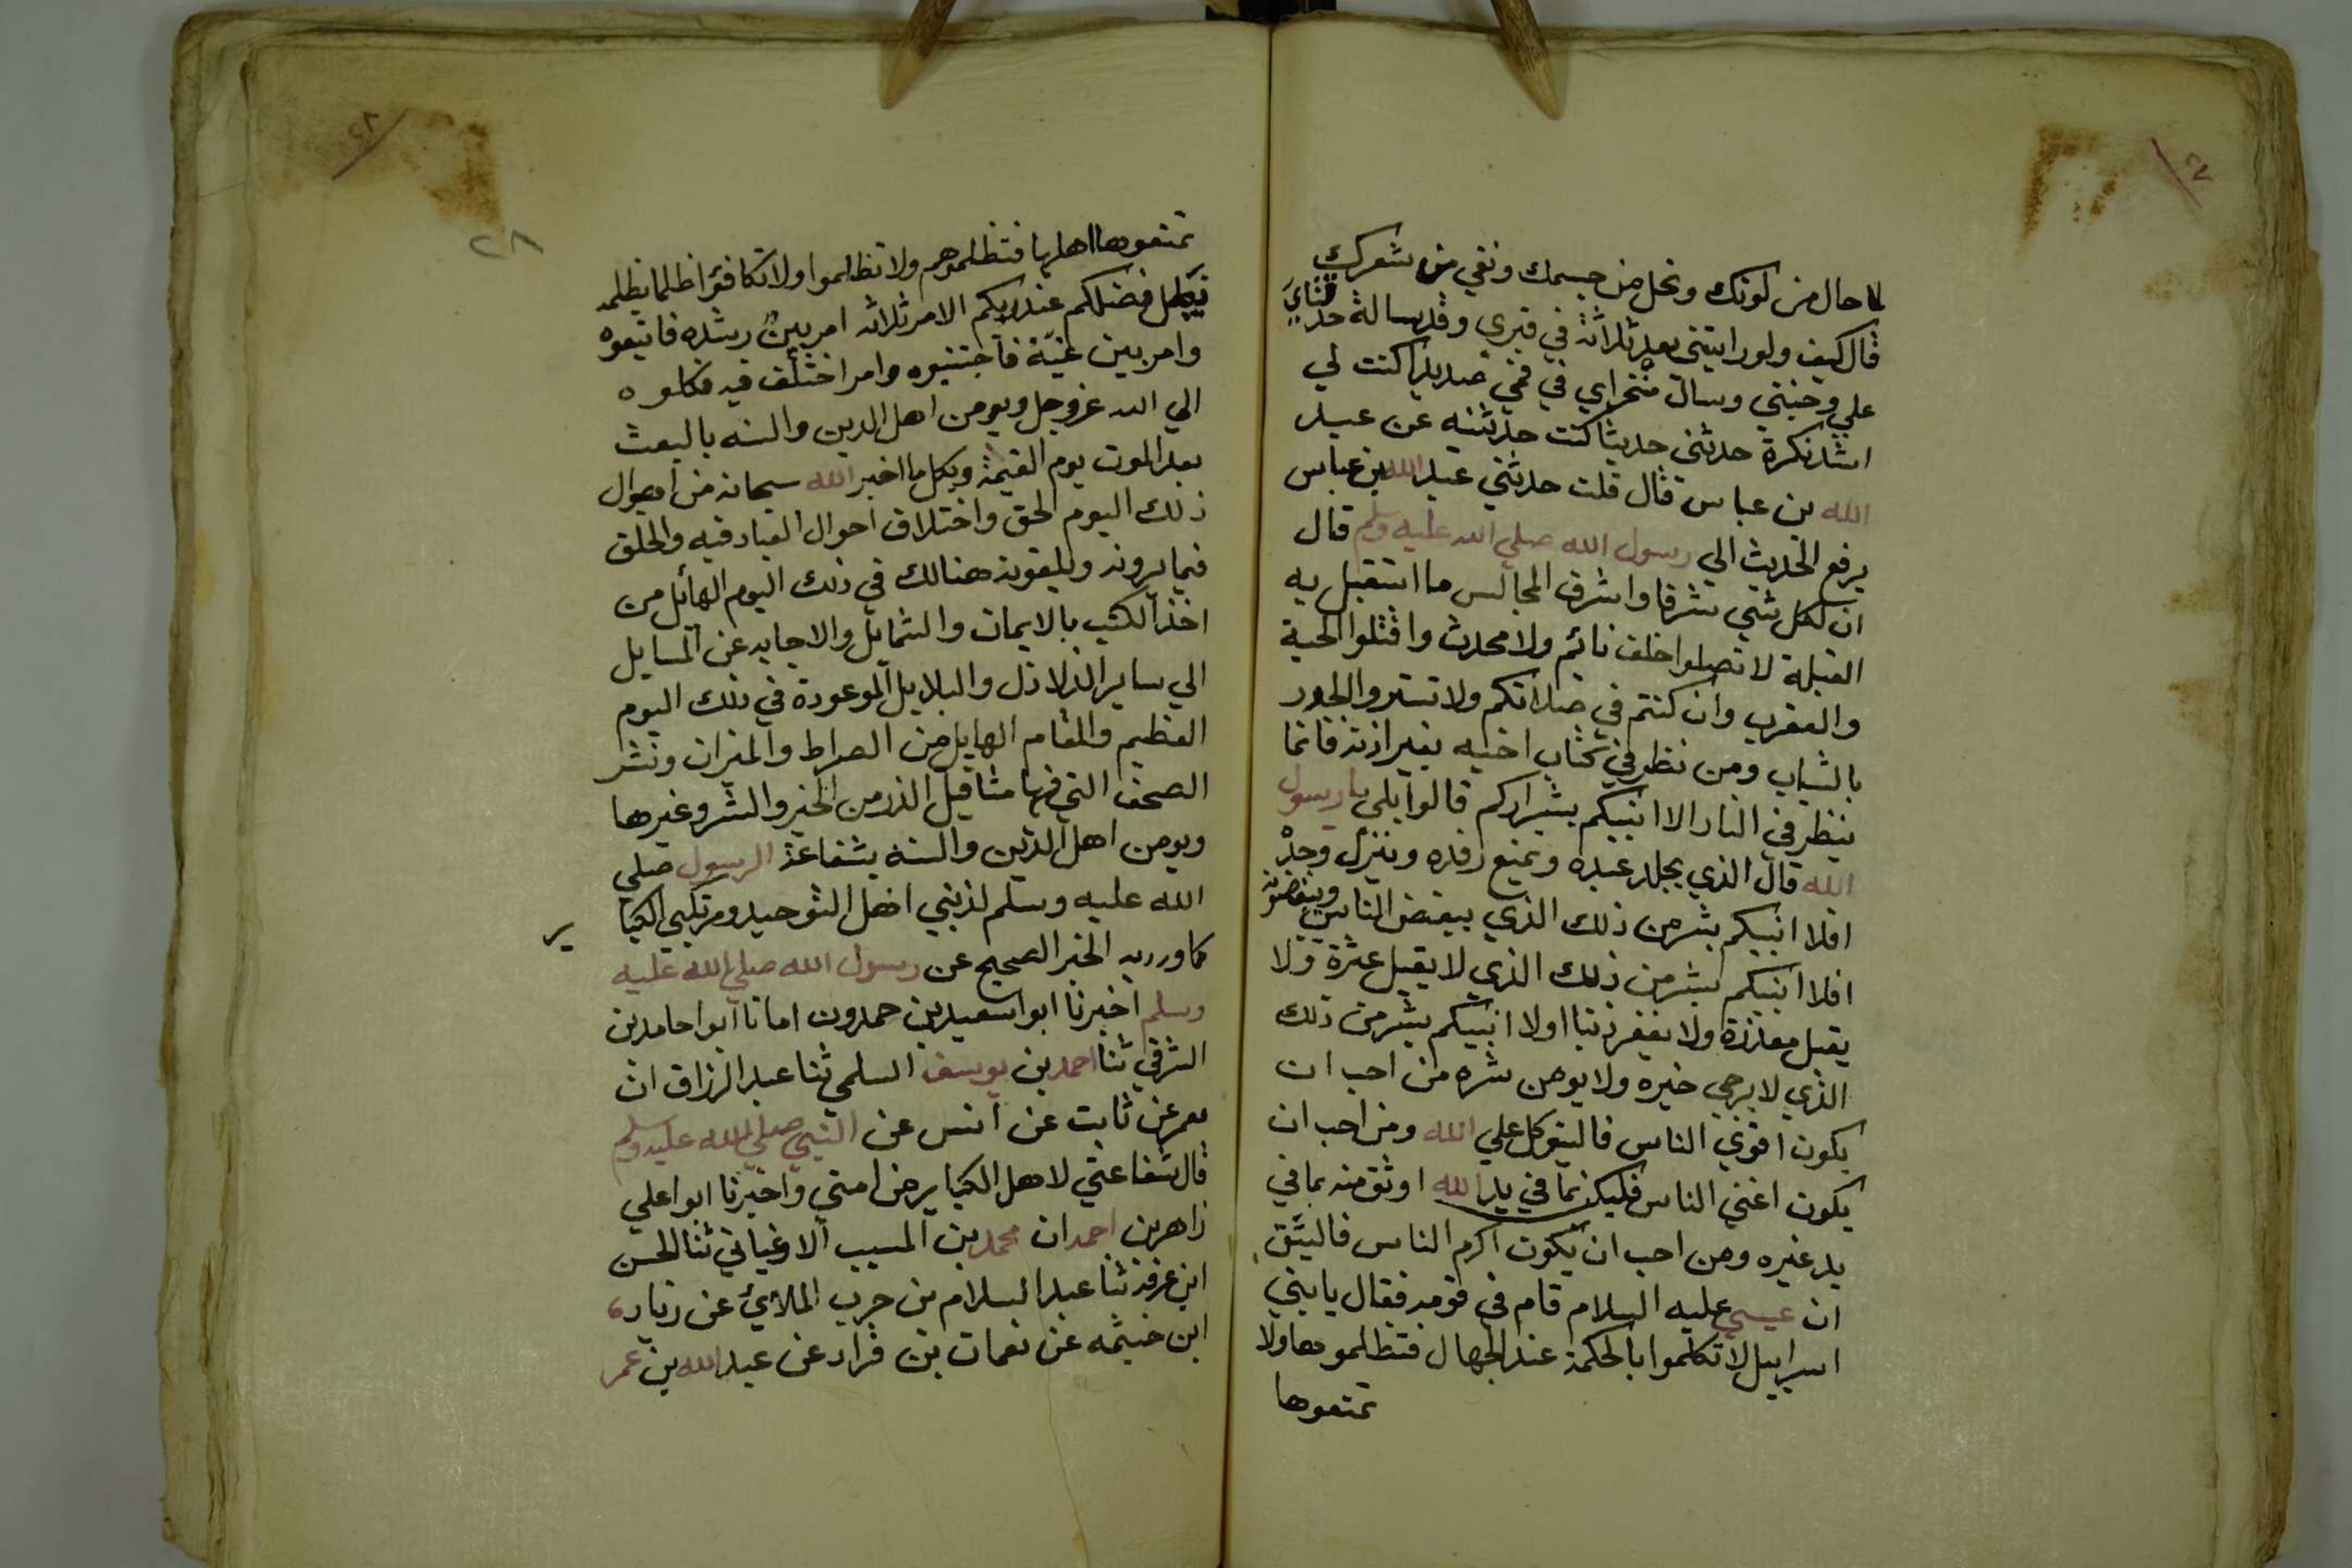 لما حال من لونك ونحل من جسمك ونفي من شعرك
قال كيف ولو رايتني بعد ثلاثة في قبري وقد سالة حدقتاي
علي وجنتي وسال منخراي في فمي صديدا كنت لي
اشد نكرة حدثني حديثا كنت حدثتنيه عن عبد
الله بن عباس قال قلت حدثني عبد الله بن عباس
يرفع الحديث الي رسول الله صلي الله عليه وسلم قال
ان لكل شي شرفا واشرف المجالس ما استقبل به
القبلة لا تصلوا خلف نائم ولا محدث واقتلوا الحية
والعقرب وان كنتم في صلاتكم ولا تستروا الجدر
بالثياب ومن نظر في كتاب اخيه بغير اذنه فانما
ينظر في النار الا انبيكم بشراركم قالوا بلي يا رسول
الله قال الذي يجلد عبده ويمنع رفده وينزل وحده
افلا انبيكم بشر من ذلك الذي يبغض الناس ويبغضونه
افلا انبيكم بشر من ذلك الذي لا يقيل عثرة ولا
يقبل معذرة ولا يغفر ذنبا اولا انبيكم بشر من ذلك
الذي لا يرجي خيره ولا يومن شره من احب ان
يكون اقوي الناس فاليتوكل علي الله ومن احب ان
يكون اغني الناس فليكن بما في يد الله اوثق منه بما في
يد غيره ومن احب ان يكون اكرم الناس فاليتق
ان عيسي عليه السلام قام في قومه فقال يا بني
اسراييل لا تكلموا بالحكمة عند الجهال فتظلموها ولا
تمنعوها
٢٨
٢٨
تمنعوها اهلها فتظلموهم ولا تظلموا ولا تكافؤا ظالما بظلمه
فيبطل فضلكم عند ربكم الامر ثلاثه امر بين رشده فاتبعوه
وامر بين غيّه فاجتنبوه وامر اختلف فيه فكلوه
الي الله عز وجل ويومن اهل الدين والسنه بالبعث
بعد الموت يوم القيمة وبكل ما اخبر الله سبحانه من اهوال
ذلك اليوم الحق واختلاف احوال العباد فيه والخلق
فيما يرونه ويلقونه هنالك في ذلك اليوم الهائل من
اخذ الكتب بالايمان والشمايل والاجابه عن المسايل
الي ساير الزلازل والبلابل الموعودة في ذلك اليوم
العظيم والمقام الهايل من الصراط والميزان ونشر
الصحف التي فيها مثاقيل الذر من الخير والشر وغيرها
ويومن اهل الدين والسنة بشفاعة الرسول صلي
الله عليه وسلم لمذنبي اهل التوحيد ومرتكبي الكبا
ير
كما ورد به الخبر الصحيح عن رسول الله صلي الله عليه
وسلم اخبرنا ابوا سعيد بن حمدون امانا ابوا حامد بن
الشرقي ثنا احمد بن يوسف السلمي ثنا عبد الرزاق ان
معمر عن ثابت عن انس عن النبي صلي الله عليه وسلم
قال شفاعتي لاهل الكباير من امتي واخبرنا ابوا علي
زاهر بن احمد ان محمد بن المسيب الارغياني ثنا الحسن
ابن عرفه ثنا عبد السلام بن حرب الملائي عن زياد
ابن خيثمه عن نعمان بن قراد عن عبد الله بن عمر